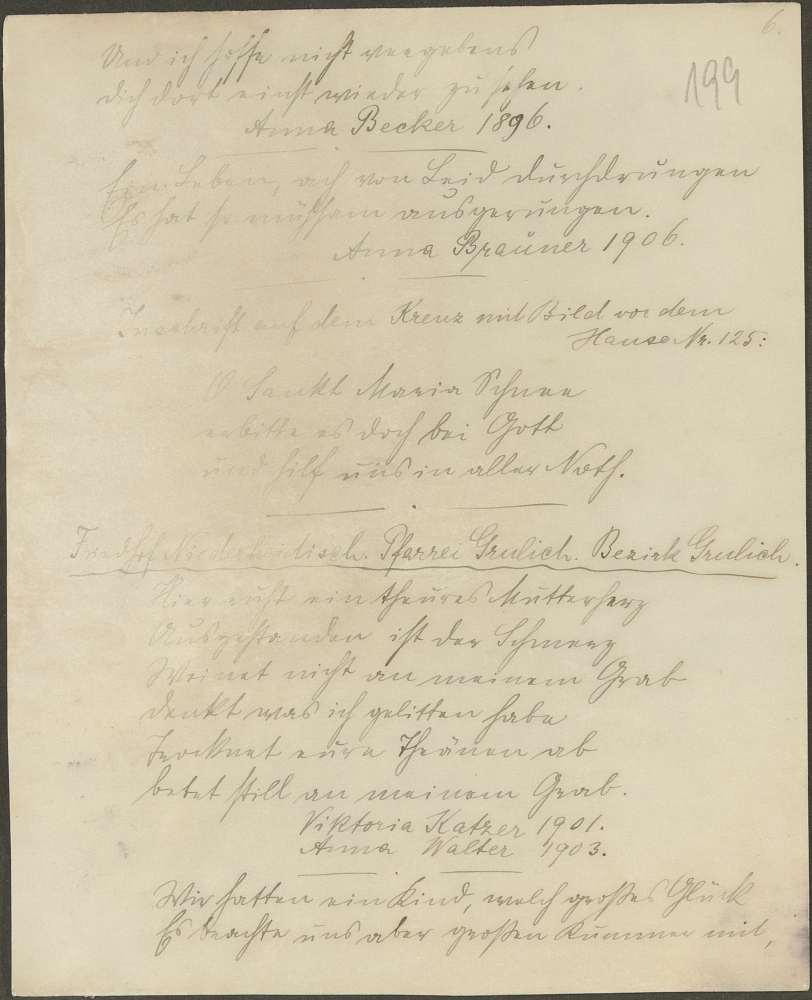 6.
199
Und ich hoffe nicht vergebens
dich dort einst wieder zu sehen.
Anna Becker 1896.
Ein Leben, ach von Leid durchdrungen
Es hat so mühsam ausgerungen.
Anna Brauner 1906.
Inschrift auf dem Kreuz mit Bild vor dem
Hause Nr. 125:
O Sankt Maria Schnee
erbitte es doch bei Gott
und hilf uns in aller Noth.
Friedhof Niederheidisch. Pfarrei Grulich. Bezirk Grulich.
Hier ruht ein theures Mutterherz
Ausgestanden ist der Schmerz
Weinet nicht an meinem Grab
denkt was ich gelitten habe
Trocknet eure Thränen ab
betet still an meinem Grab.
Viktoria Katzer 1901.
Anna Walter 1903.
Wir hatten ein Kind, welch großes Glück
Es brachte uns aber großen Kummer mit,